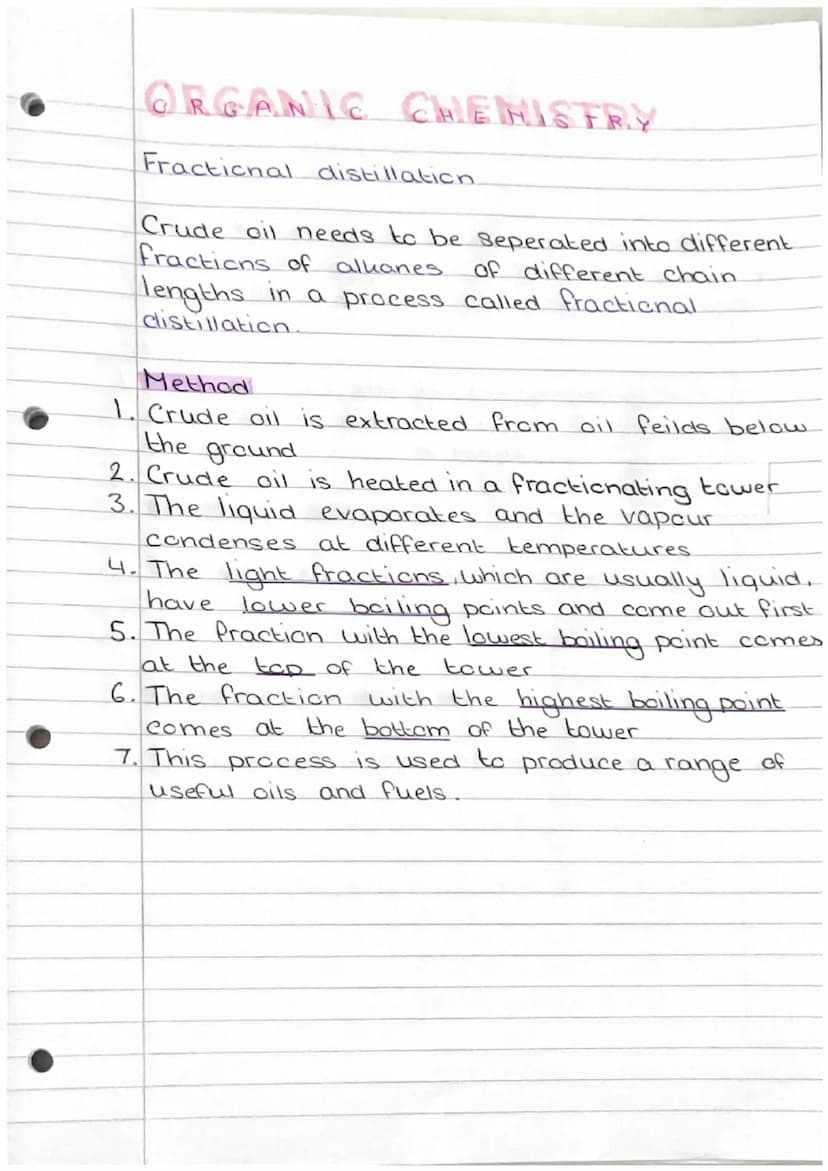 ORGANIC CHEMISTRY
Fractional distillation
Crude oil needs to be seperated into different
fractions of alkanes of different chain
lengths in a process called fractional
distillation.
Method
1. Crude oil is extracted from oil feilds below
the ground
2. Crude oil is heated in a fractionating tower
3. The liquid evaporates and the vapour
condenses at different temperatures
4. The light fractions, which are usually liquid,
have lower boiling points and come out first
5. The fraction with the lowest boiling point comes
at the top of the tower
6. The fraction with the highest boiling point
comes at the bottom of the tower
7. This process is used to produce a range of
useful oils and fuels.